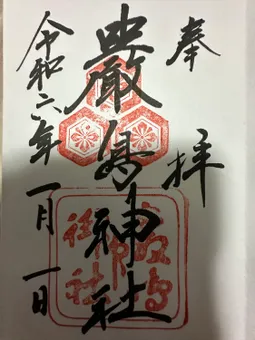 奉拝
嚴島神社
令和六年一月一日